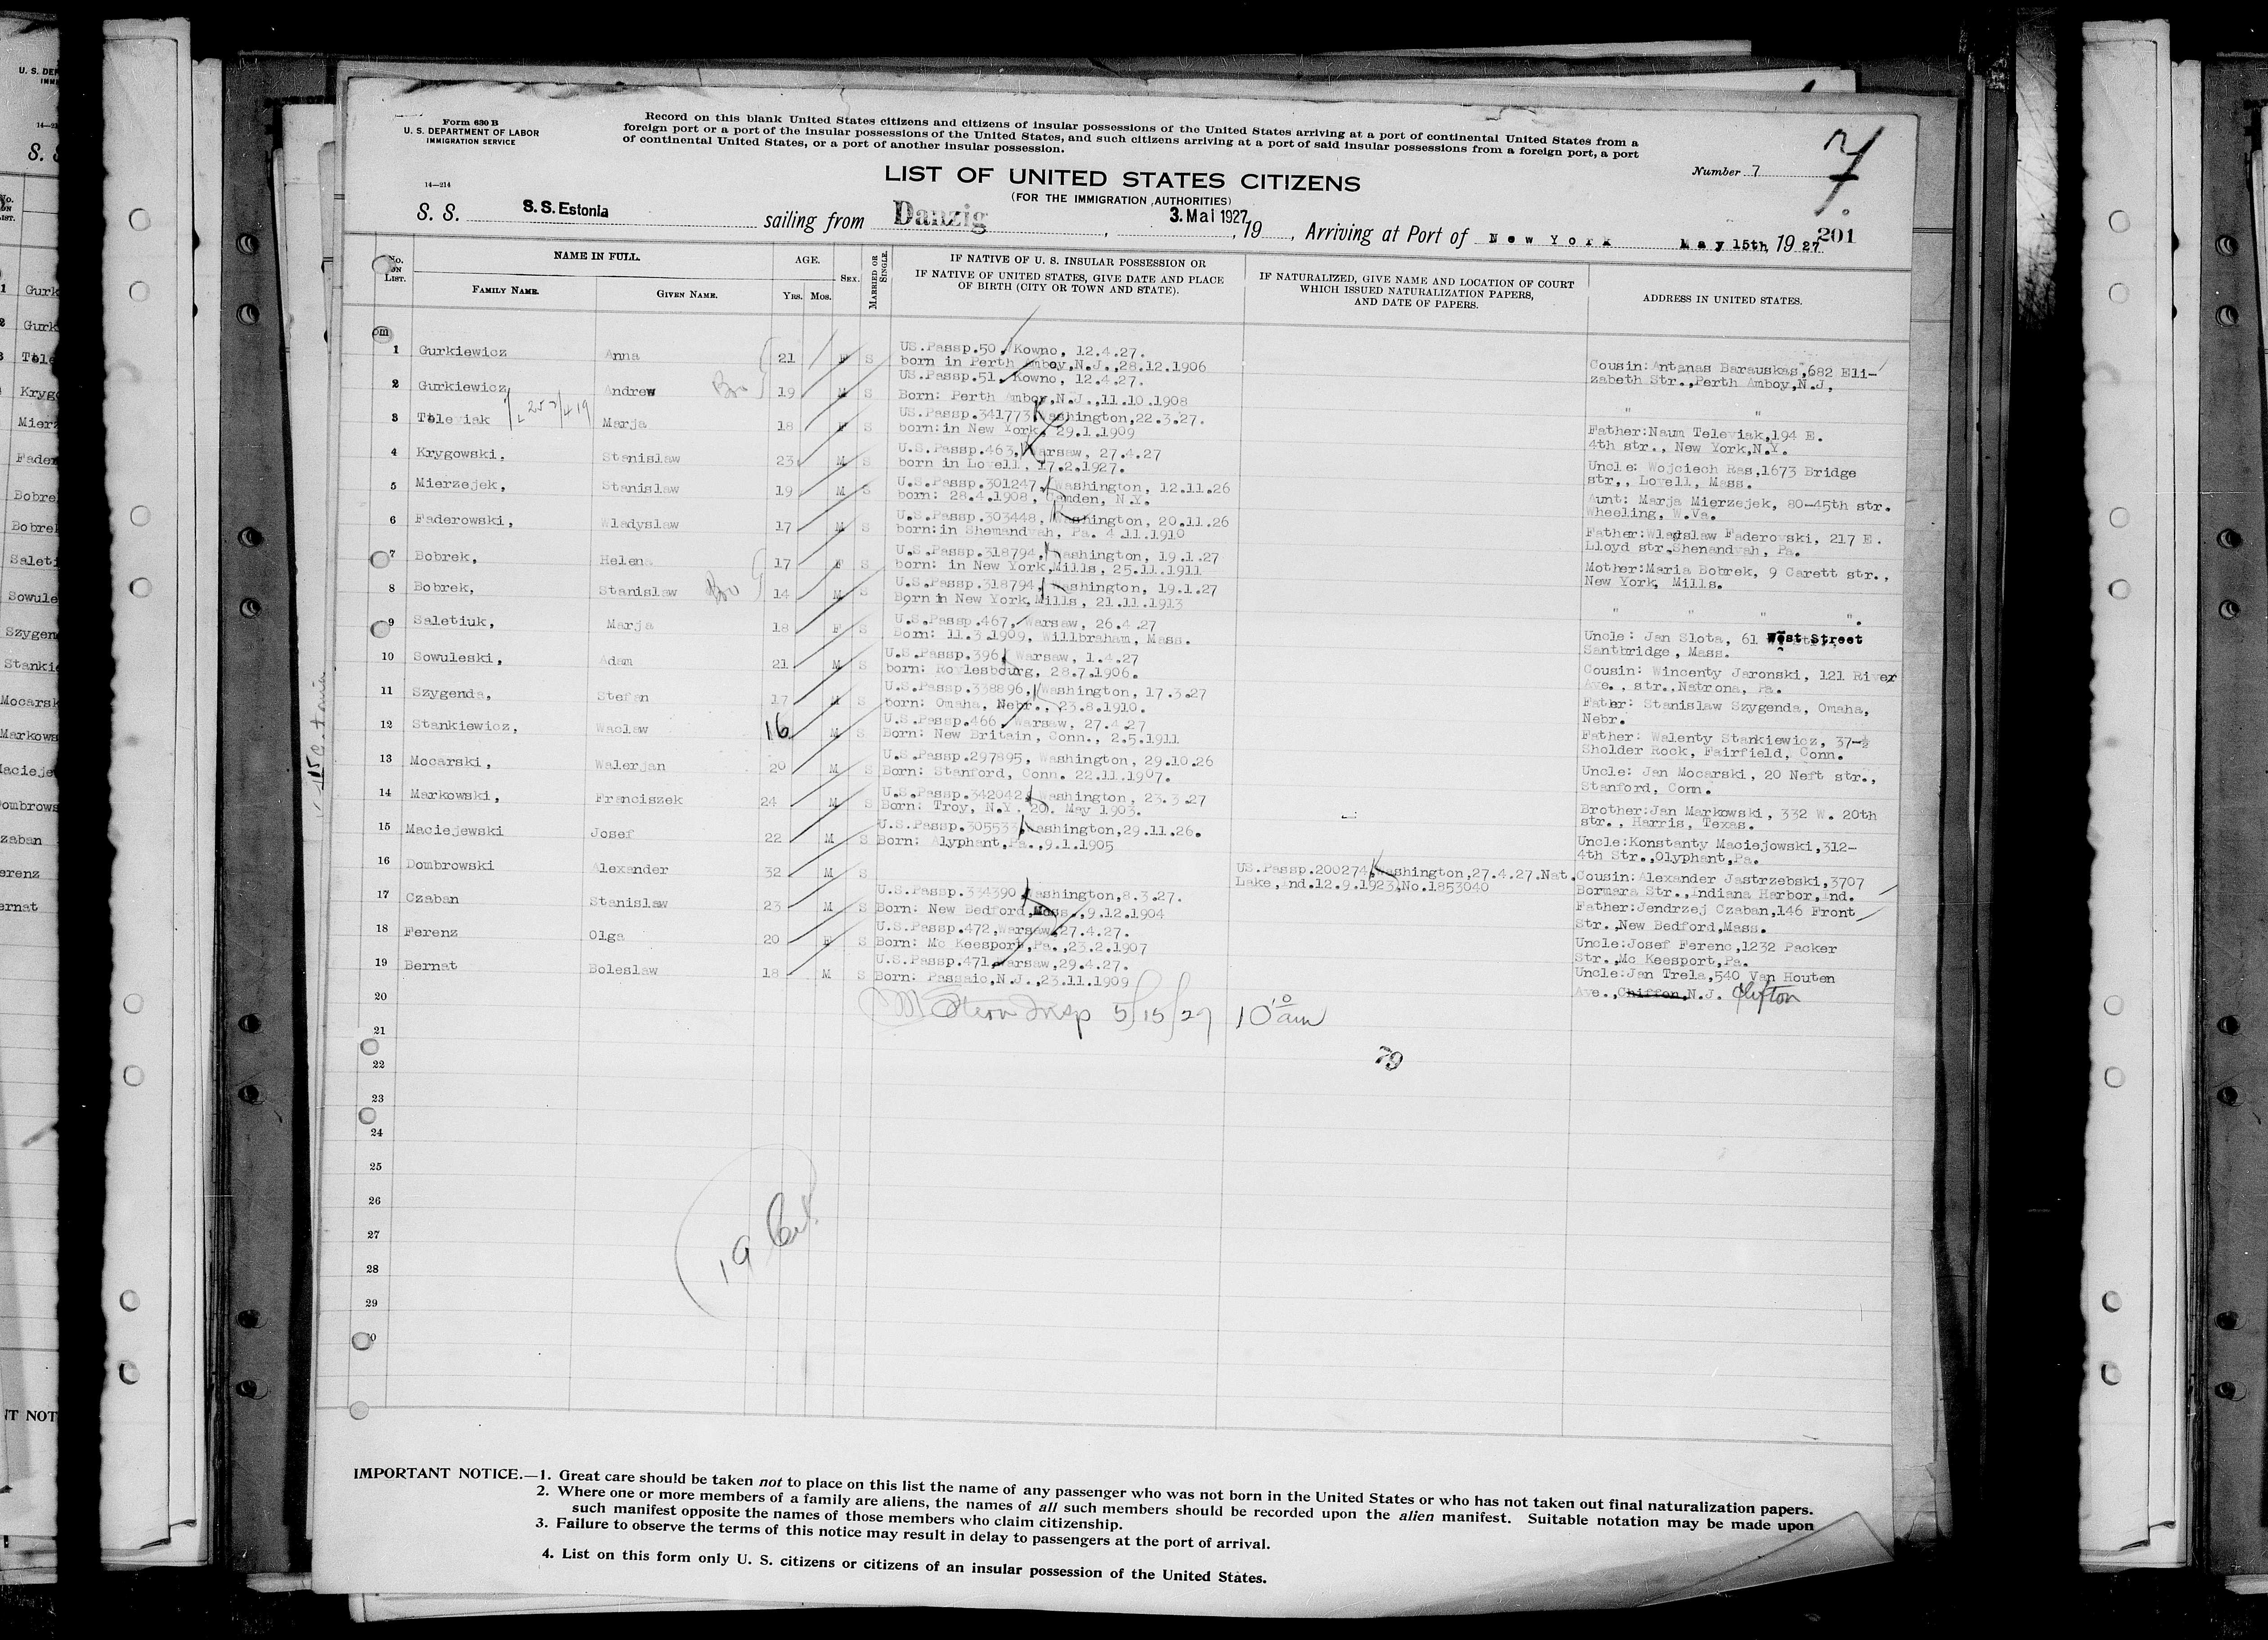 Form 630 B
U. S. DEPARTMENT OF LABOR
IMMIGRATION SERVICE
14—214
Record on this blank United States citizens and citizens of insular possessions of the United States arriving at a port of continental United States from a
foreign port or a port of the insular possessions of the United States, and such citizens arriving at a port of said insular possessions from a foreign port, a port
of continental United States, or a port of another insular possession.
Number 7
7
LIST OF UNITED STATES CITIZENS
(FOR THE IMMIGRATION AUTHORITIES)
S. S. S.S.Estonia sailing from Danzig, 3.Mai 1927, 19, Arriving at Port of New York May 15th, 1927
201
No. ON LIST.
NAME IN FULL.
FAMILY NAME.
GIVEN NAME.
AGE.
YRS. MOS.
SEX.
MARRIED OR SINGLE.
IF NATIVE OF U. S. INSULAR POSSESSION OR
IF NATIVE OF UNITED STATES, GIVE DATE AND PLACE
OF BIRTH (CITY OR TOWN AND STATE).
IF NATURALIZED, GIVE NAME AND LOCATION OF COURT
WHICH ISSUED NATURALIZATION PAPERS,
AND DATE OF PAPERS.
ADDRESS IN UNITED STATES.
1 Gurkiewicz Anna 21 F S US.Passp.50, Kowno, 12.4.27.
born in Perth Amboy,N.J.,28.12.1906
Cousin:Antanas Barauskas,682 Eli-
zabeth Str.,Perth Amboy,N.J,
2 Gurkiewicz Andrew 19 M S US.Passp.51, Kowno, 12.4.27.
Born: Perth Amboy,N.J.,11.10.1908
" "
3 Televiak Marja 18 F S US.Passp.341773,Washington,22.3.27.
born:in New York, 29.1.1909
Father:Naum Televiak,194 E.
4th str., New York,N.Y.
4 Krygowski, Stanislaw 23 M S U.S.Passp.463, Warsaw, 27.4.27
born in Lovell, 17.2.1927.
Uncle: Wojciech Ras,1673 Bridge
str,, Lovell, Mass.
5 Mierzejek, Stanislaw 19 M S U.S.Passp.301247, Washington, 12.11.26
born: 28.4.1908, Camden, N.Y.
Aunt: Marja Mierzejek, 80-45th str.
Wheeling, W.Va.
6 Faderowski, Wladyslaw 17 M S U.S.Passp.303448, Washington, 20.11.26
born:in Shemandvah, Pa. 4.11.1910
Father:Wladslaw Faderovski, 217 E.
Lloyd str,Shenandvah, Pa.
7 Bobrek, Helena 17 F S U.S.Passp.318794,Washington, 19.1.27
born: in New York,Mills, 25.11.1911
Mother:Maria Bobrek, 9 Carett str.,
New York, Mills.
8 Bobrek, Stanislaw 14 M S U.S.Passp.318794, Washington, 19.1.27
Born in New York,Mills, 21.11.1913
" " " ".
9 Saletiuk, Marja 18 F S U.S.Passp.467, Warsaw, 26.4.27
Born: 11.3.1909, Willbraham, Mass.
Uncle: Jan Slota, 61 West Street
Santbridge, Mass.
10 Sowuleski, Adam 21 M S U.S.Passp.396, Warsaw, 1.4.27
born: Roylesbourg, 28.7.1906.
Cousin: Wincenty Jaronski, 121 River
Ave., str.,Natrona, Pa.
11 Szygenda, Stefan 17 M S U.S.Passp.338896, Washington, 17.3.27
born: Omaha, Nebr., 23.8.1910.
Father: Stanislaw Szygenda, Omaha,
Nebr.
12 Stankiewicz, Waclaw 16 M S U.S.Passp.466, Warsaw, 27.4.27
Born: New Britain, Conn., 2.5.1911
Father: Walenty Stankiewicz, 37-½
Sholder Rock, Fairfield, Conn.
13 Mocarski, Walerjan 20 M S U.S.Passp.297895, Washington, 29.10.26
Born: Stanford, Conn. 22.11.1907.
Uncle: Jan Mocarski, 20 Neft str.,
Stanford, Conn.
14 Markowski, Franciszek 24 M S U.S.Passp.342042, Washington, 23.3.27
Born: Troy, N.Y. 20. May 1903.
Brother:Jan Markowski, 332 W. 20th
str., Harris, Texas.
15 Maciejewski Josef 22 M S U.S.Passp.305533,Washington,29.11.26.
Born: Alyphant,Pa.,9.1.1905
Uncle:Konstanty Maciejowski,312-
4th Str.,Olyphant,Pa.
16 Dombrowski Alexander 32 M S US.Passp.200274,Washington,27.4.27.Nat.
Lake,Ind.12.9.1923,No.1853040
Cousin:Alexander Jastrzebski,3707
Bormara Str.,Indiana Harbor,Ind.
17 Czaban Stanislaw 23 M S U.S.Passp.334390,Washington,8.3.27.
Born: New Bedford,Mass.,9.12.1904
Father:Jendrzej Czaban,146 Front
Str.,New Bedford,Mass.
18 Ferenz Olga 20 F S U.S.Passp.472,Warsaw,27.4.27.
Born: Mc Keesport,Pa.,23.2.1907
Uncle:Josef Ferenc,1232 Packer
Str.,Mc Keesport,Pa.
19 Bernat Boleslaw 18 M S U.S.Passp.471,Warsaw,29.4.27.
Born: Passaic,N.J.,23.11.1909
Uncle:Jan Trela,540 Van Houten
Ave.,Chiffon,N.J. Clifton
20
Stern Insp 5/15/27 10 am
21
22
79
23
24
25
26
27
19
28
29
IMPORTANT NOTICE.—1. Great care should be taken not to place on this list the name of any passenger who was not born in the United States or who has not taken out final naturalization papers.
2. Where one or more members of a family are aliens, the names of all such members should be recorded upon the alien manifest. Suitable notation may be made upon
such manifest opposite the names of those members who claim citizenship.
3. Failure to observe the terms of this notice may result in delay to passengers at the port of arrival.
4. List on this form only U. S. citizens or citizens of an insular possession of the United States.